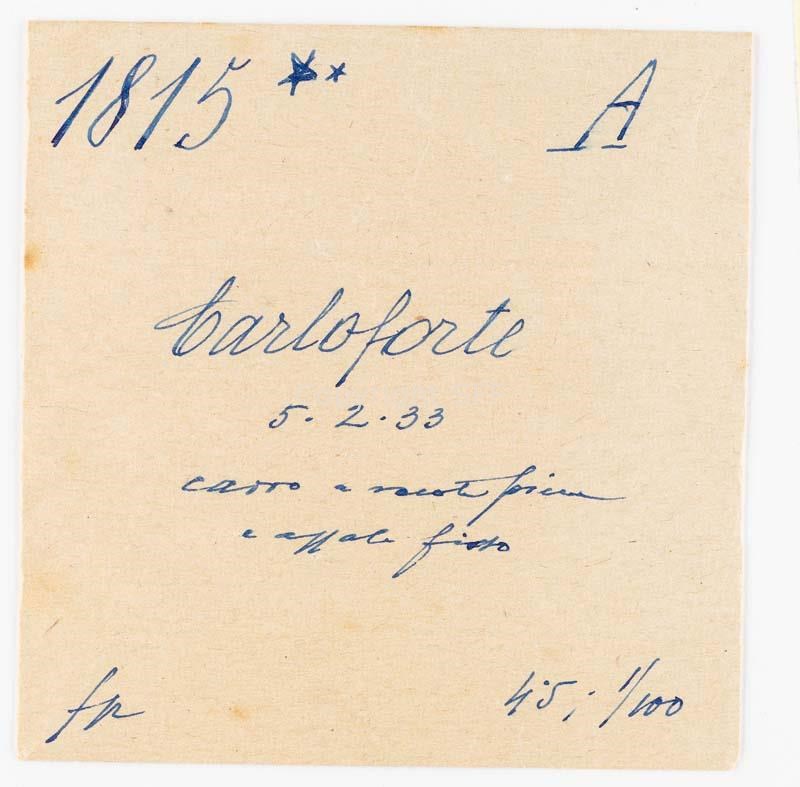 1815 ** A
Carloforte
5.2.33
carro a ruote piene
e assale fisso
fp
4.5; 1/100